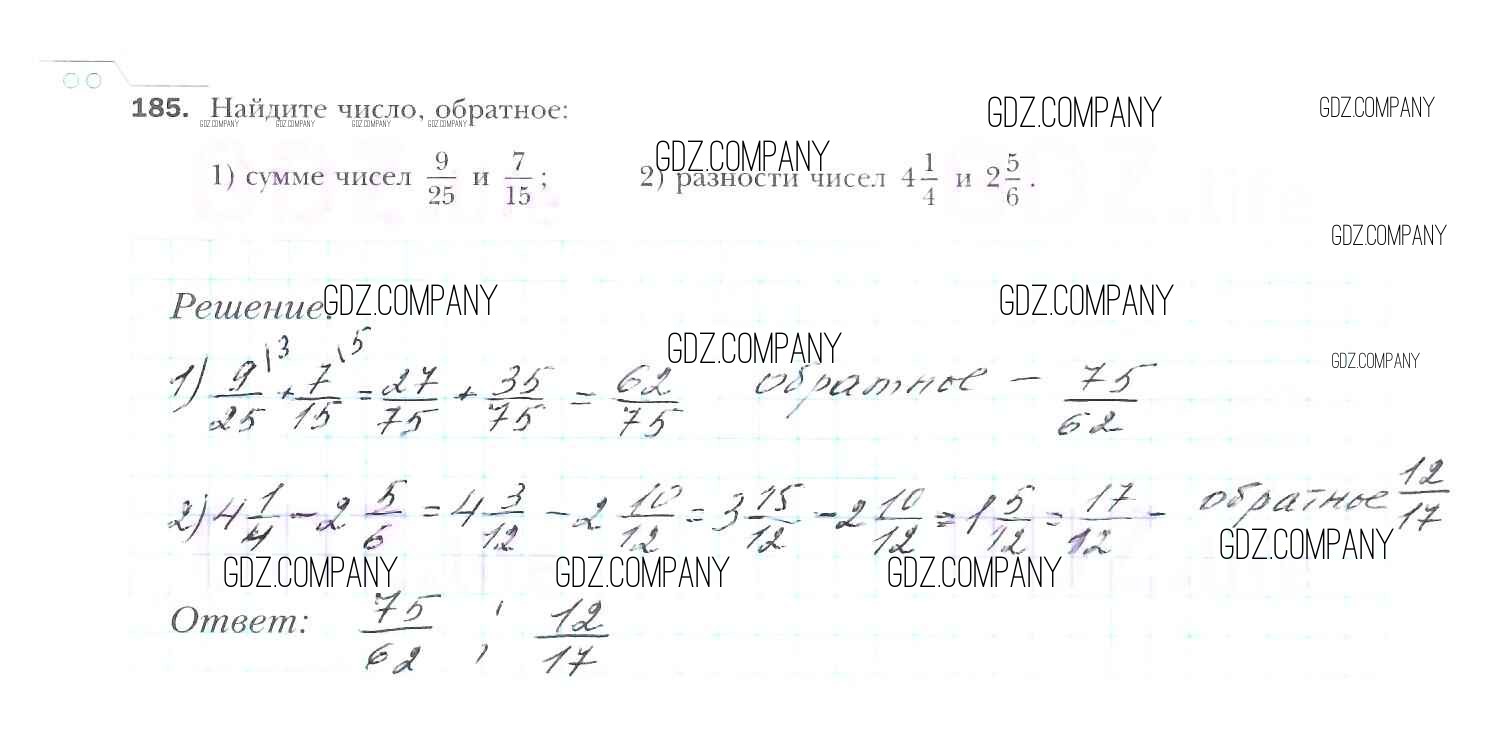 185. Найдите число, обратное:
GDZ.COMPANY GDZ.COMPANY
GDZ.COMPANY GDZ.COMPANY GDZ.COMPANY GDZ.COMPANY
GDZ.COMPANY
1) сумме чисел 9/25 и 7/15; 2) разности чисел 4 1/4 и 2 5/6.
GDZ.COMPANY
Решение. GDZ.COMPANY GDZ.COMPANY
GDZ.COMPANY GDZ.COMPANY
1) 9/25 |3 + 7/15 |5 = 27/75 + 35/75 = 62/75 обратное – 75/62
2) 4 1/4 – 2 5/6 = 4 3/12 – 2 10/12 = 3 15/12 – 2 10/12 = 1 5/12 = 17/12 – обратное 12/17
GDZ.COMPANY
GDZ.COMPANY GDZ.COMPANY GDZ.COMPANY
Ответ: 75/62 ; 12/17